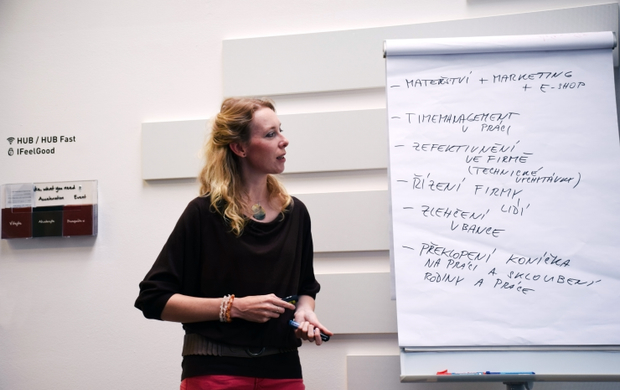 HUB / HUB Fast
IFeelGood
what you need
Acceleration Event
- MATEŘSTVÍ + MARKETING
+ E-SHOP
- TIMEMANAGEMENT
V PRÁCI
- ZEFEKTIVNĚNÍ
VE FIRMĚ
(TECHNICKÉ
VYCHYTÁVKY)
- ŘÍZENÍ FIRMY
LIDÍ
- ZLEHČENÍ
V BANCE
- PŘEKLOPENÍ KONÍČKA
NA PRÁCI A SKLOUBENÍ
RODINY A PRÁCE